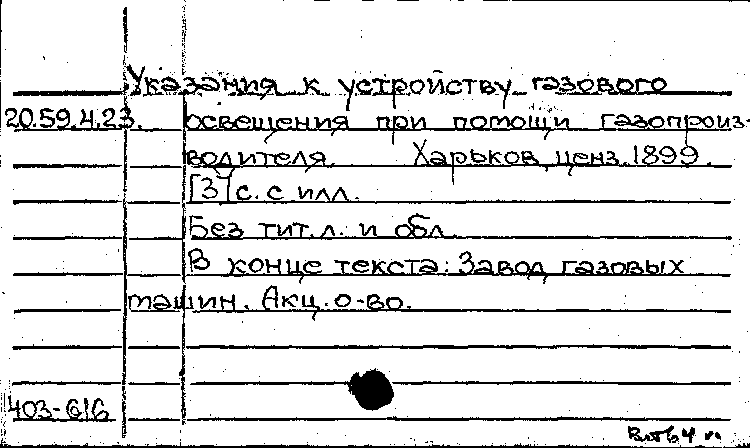 Указания к устройству газового
20.59.4.23. освещения при помощи газопроиз-
водителя. Харьков, ценз. 1899.
[3] с. с илл.
Без тит. л. и обл.
В конце текста: Завод газовых
машин. Акц. о-во.
403-616